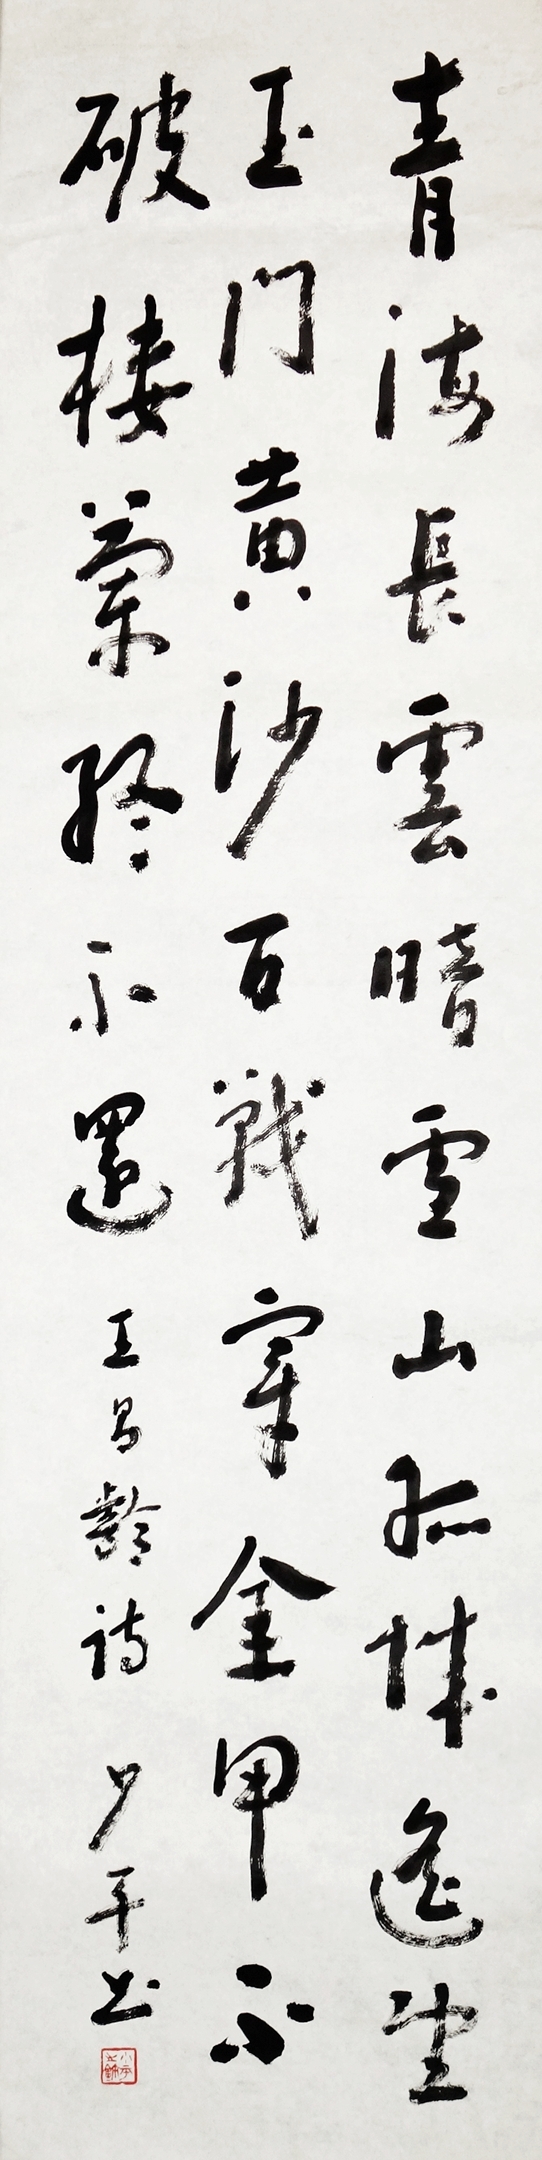 青海長雲暗雪山孤城遙望
玉門黄沙百戰穿金甲不
破樓蘭終不還 王昌齡詩 少平书